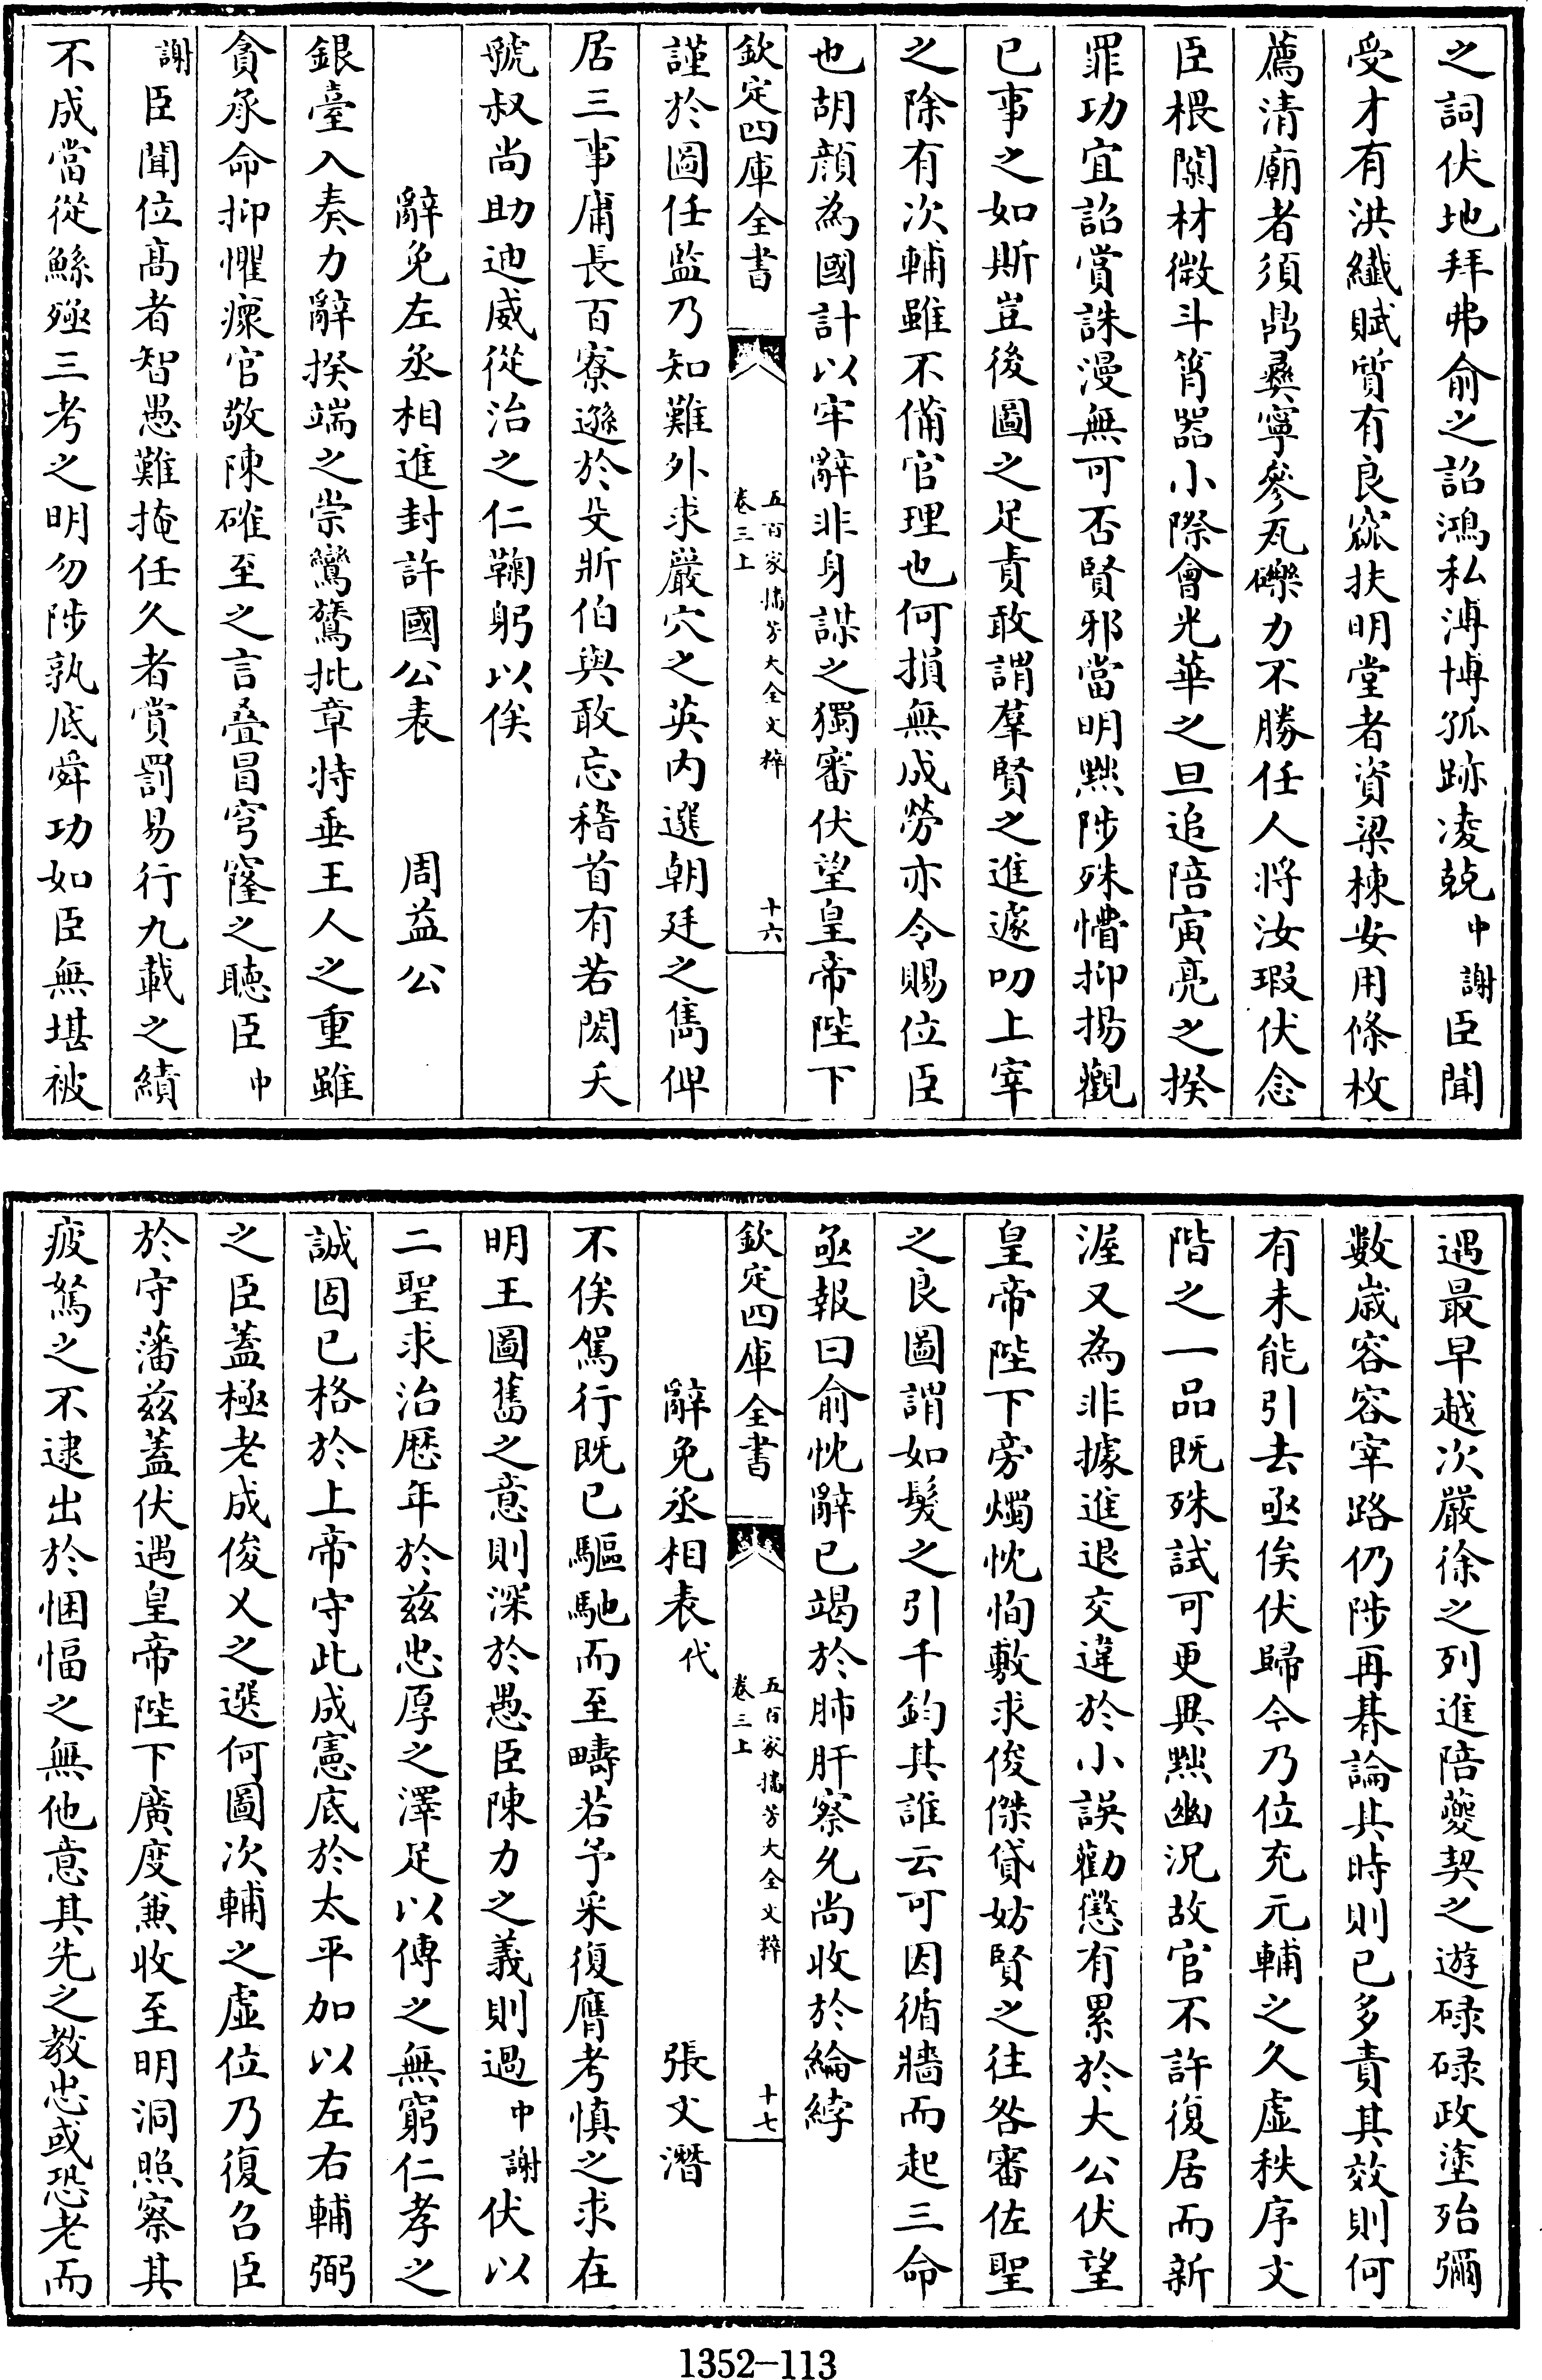 之詞伏地拜弗俞之詔鴻私溥博孤跡凌兢中謝臣聞
受才有洪纖賦質有良窳扶明堂者資梁棟安用條枚
薦清廟者須鼎彝寧參瓦礫力不勝任人將汝瑕伏念
臣椳闑材微斗筲器小際會光華之旦追陪寅亮之揆
罪功宜詔賞誅漫無可否賢邪當明黜陟殊懵抑揚觀
已事之如斯豈後圖之足責敢謂羣賢之進遽叨上宰
之除有次輔雖不備官理也何損無成勞亦令賜位臣
也胡顔為國計以牢辭非身謀之獨審伏望皇帝陛下
欽定四庫全書
五百家播芳大全文粹
卷三上
十六
謹於圖任監乃知難外求巖穴之英内選朝廷之雋俾
居三事庸長百寮遜於殳斨伯與敢忘稽首有若閎夭
虢叔尚助迪威從治之仁鞠躬以俟
辭免左丞相進封許國公表
周益公
銀臺入奏力辭揆端之崇鸞鵞批章特垂王人之重雖
貪承命抑懼瘝官敬陳確至之言叠冒穹窿之聽臣中
謝臣聞位高者智愚難掩任久者賞罰易行九載之績
不成當從鯀殛三考之明勿陟孰底舜功如臣無堪被
遇最早越次嚴徐之列進陪夔契之遊碌碌政塗殆彌
數歲容容宰路仍陟再朞論其時則已多責其效則何
有未能引去亟俟伏歸今乃位充元輔之久虛秩序文
階之一品既殊試可更異黜幽況故官不許復居而新
渥又為非據進退交違於小誤勸懲有累於大公伏望
皇帝陛下旁燭忱恂敷求俊傑貸妨賢之往咎審佐聖
之良圖謂如髮之引千鈞其誰云可因循牆而起三命
亟報曰俞忱辭已竭於肺肝察允尚收於綸綍
欽定四庫全書
五百家播芳大全文粹
卷三上
十七
辭免丞相表代
張文潛
不俟駕行既已驅馳而至疇若予采復膺考慎之求在
明王圖舊之意則深於愚臣陳力之義則過中謝伏以
二聖求治歴年於兹忠厚之澤足以傳之無窮仁孝之
誠固已格於上帝守此成憲底於太平加以左右輔弼
之臣蓋極老成俊乂之選何圖次輔之虛位乃復召臣
於守藩兹蓋伏遇皇帝陛下廣度兼收至明洞照察其
疲駑之不逮出於悃愊之無他意其先之教忠或恐老而
1352-113